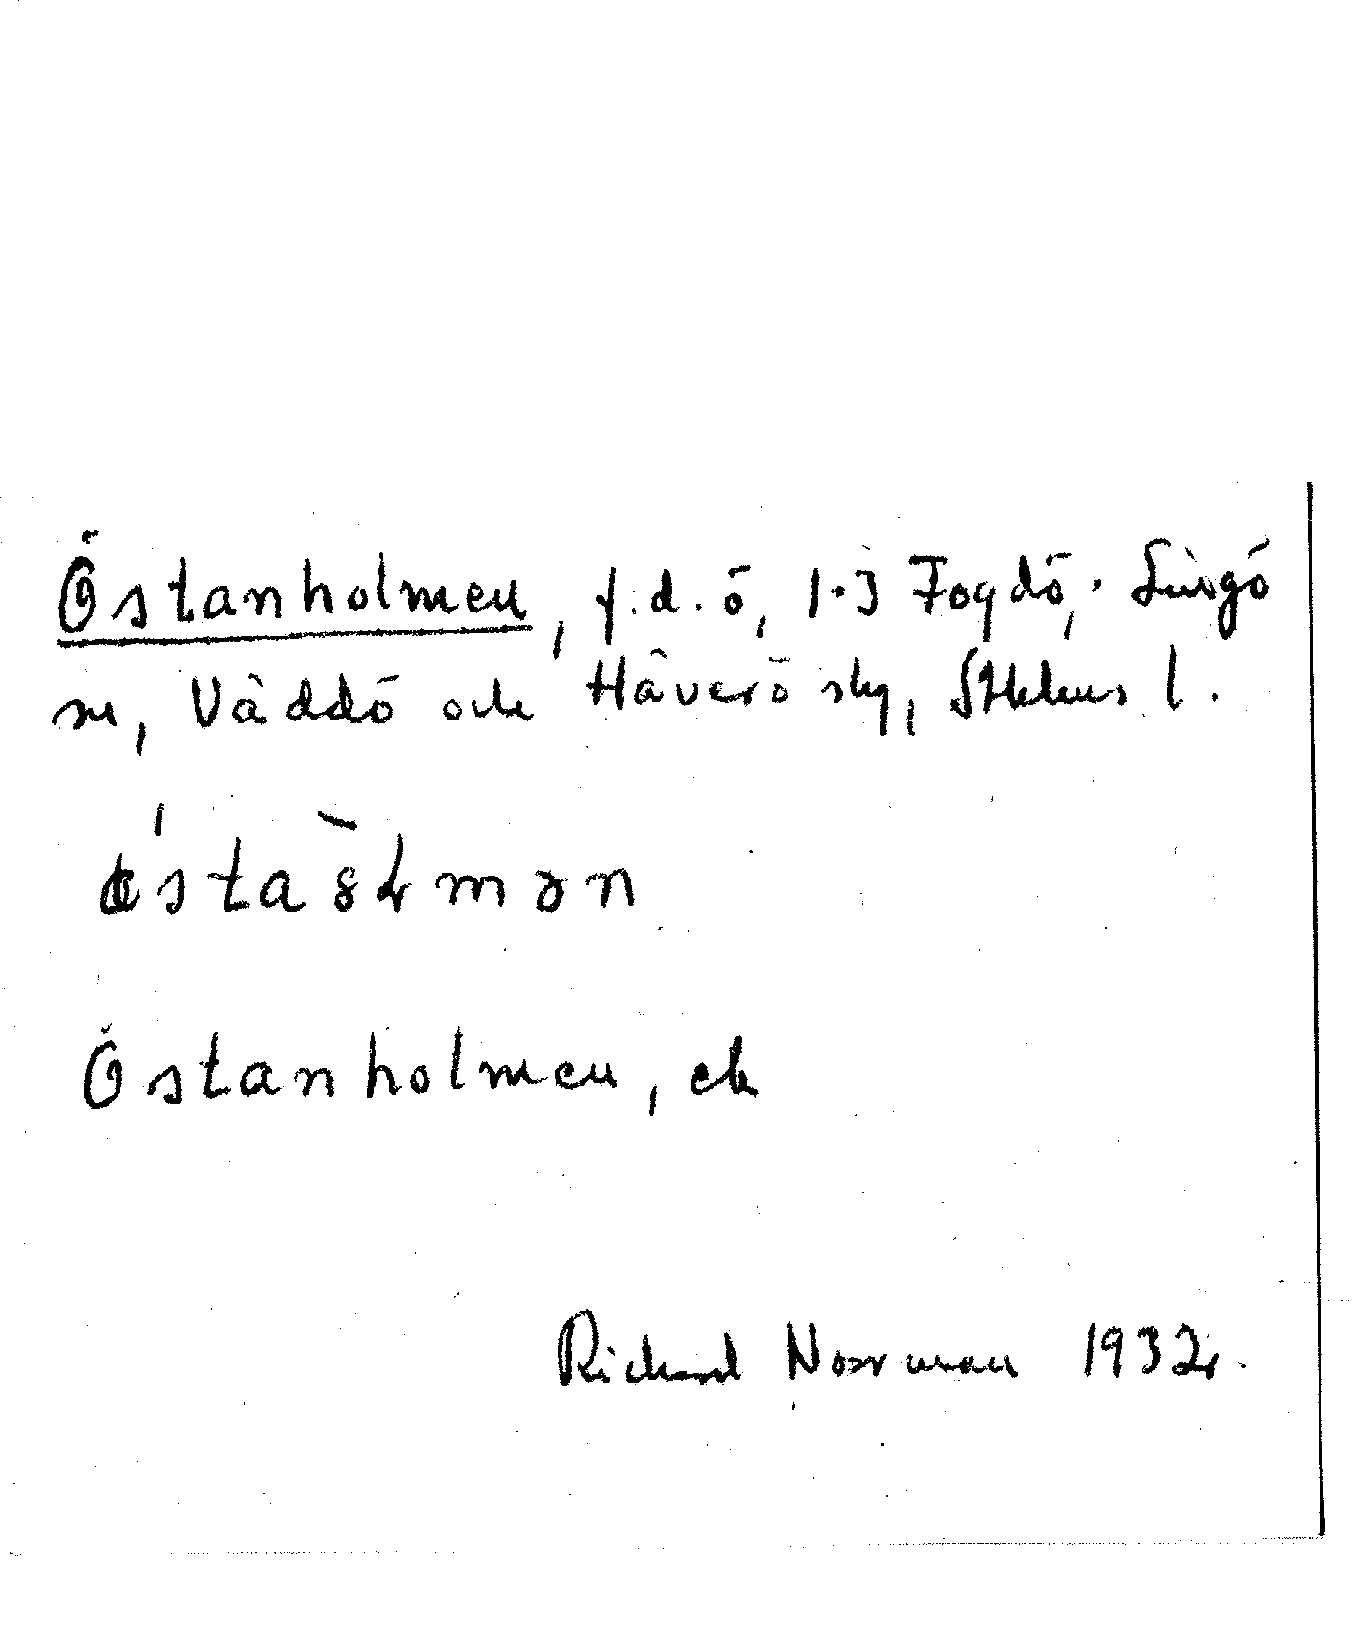 Östanholmen, f.d. ö, 1-3 Fogdö, Singö
sn, Väddö och Häverö skg, Sthlms l.
Östanholmen, ek
Richard Norrman 1932.